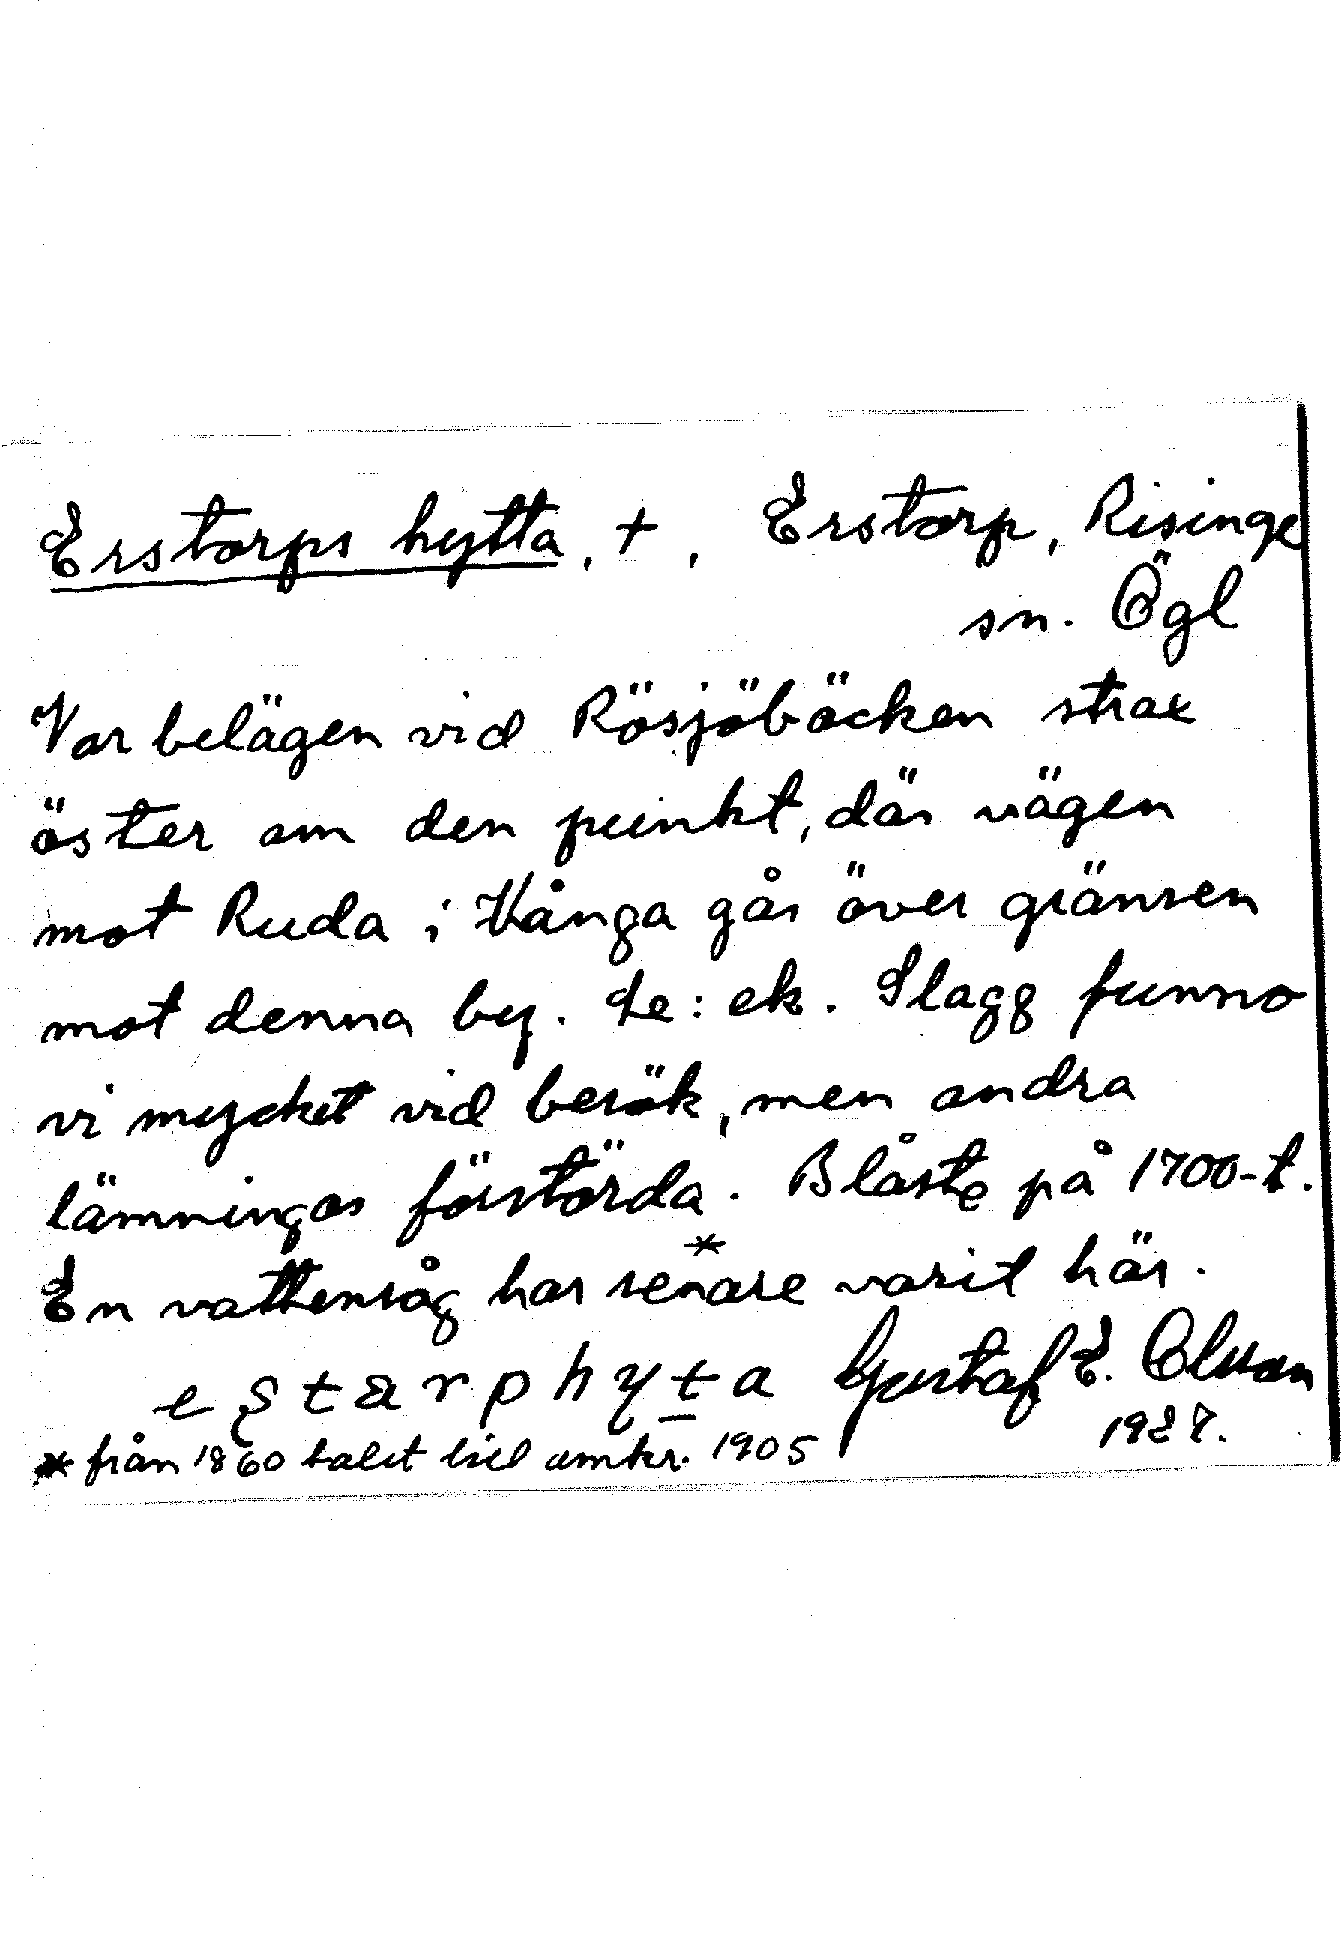 Erstorps hytta, +, Erstorp, Risinge
sn. Ögl
Var belägen vid Rösjöbäcken strax
öster om den punkt, där vägen
mot Ruda i Vånga går över gränsen
mot denna by. Le: ek. Slagg funno
vi mycket vid besök, men andra
lämningar förstörda. Blåste på 1700-t.
En vattensåg har senare* varit här.
Gustaf E. Olsson
* från 1860 talet till omkr. 1905